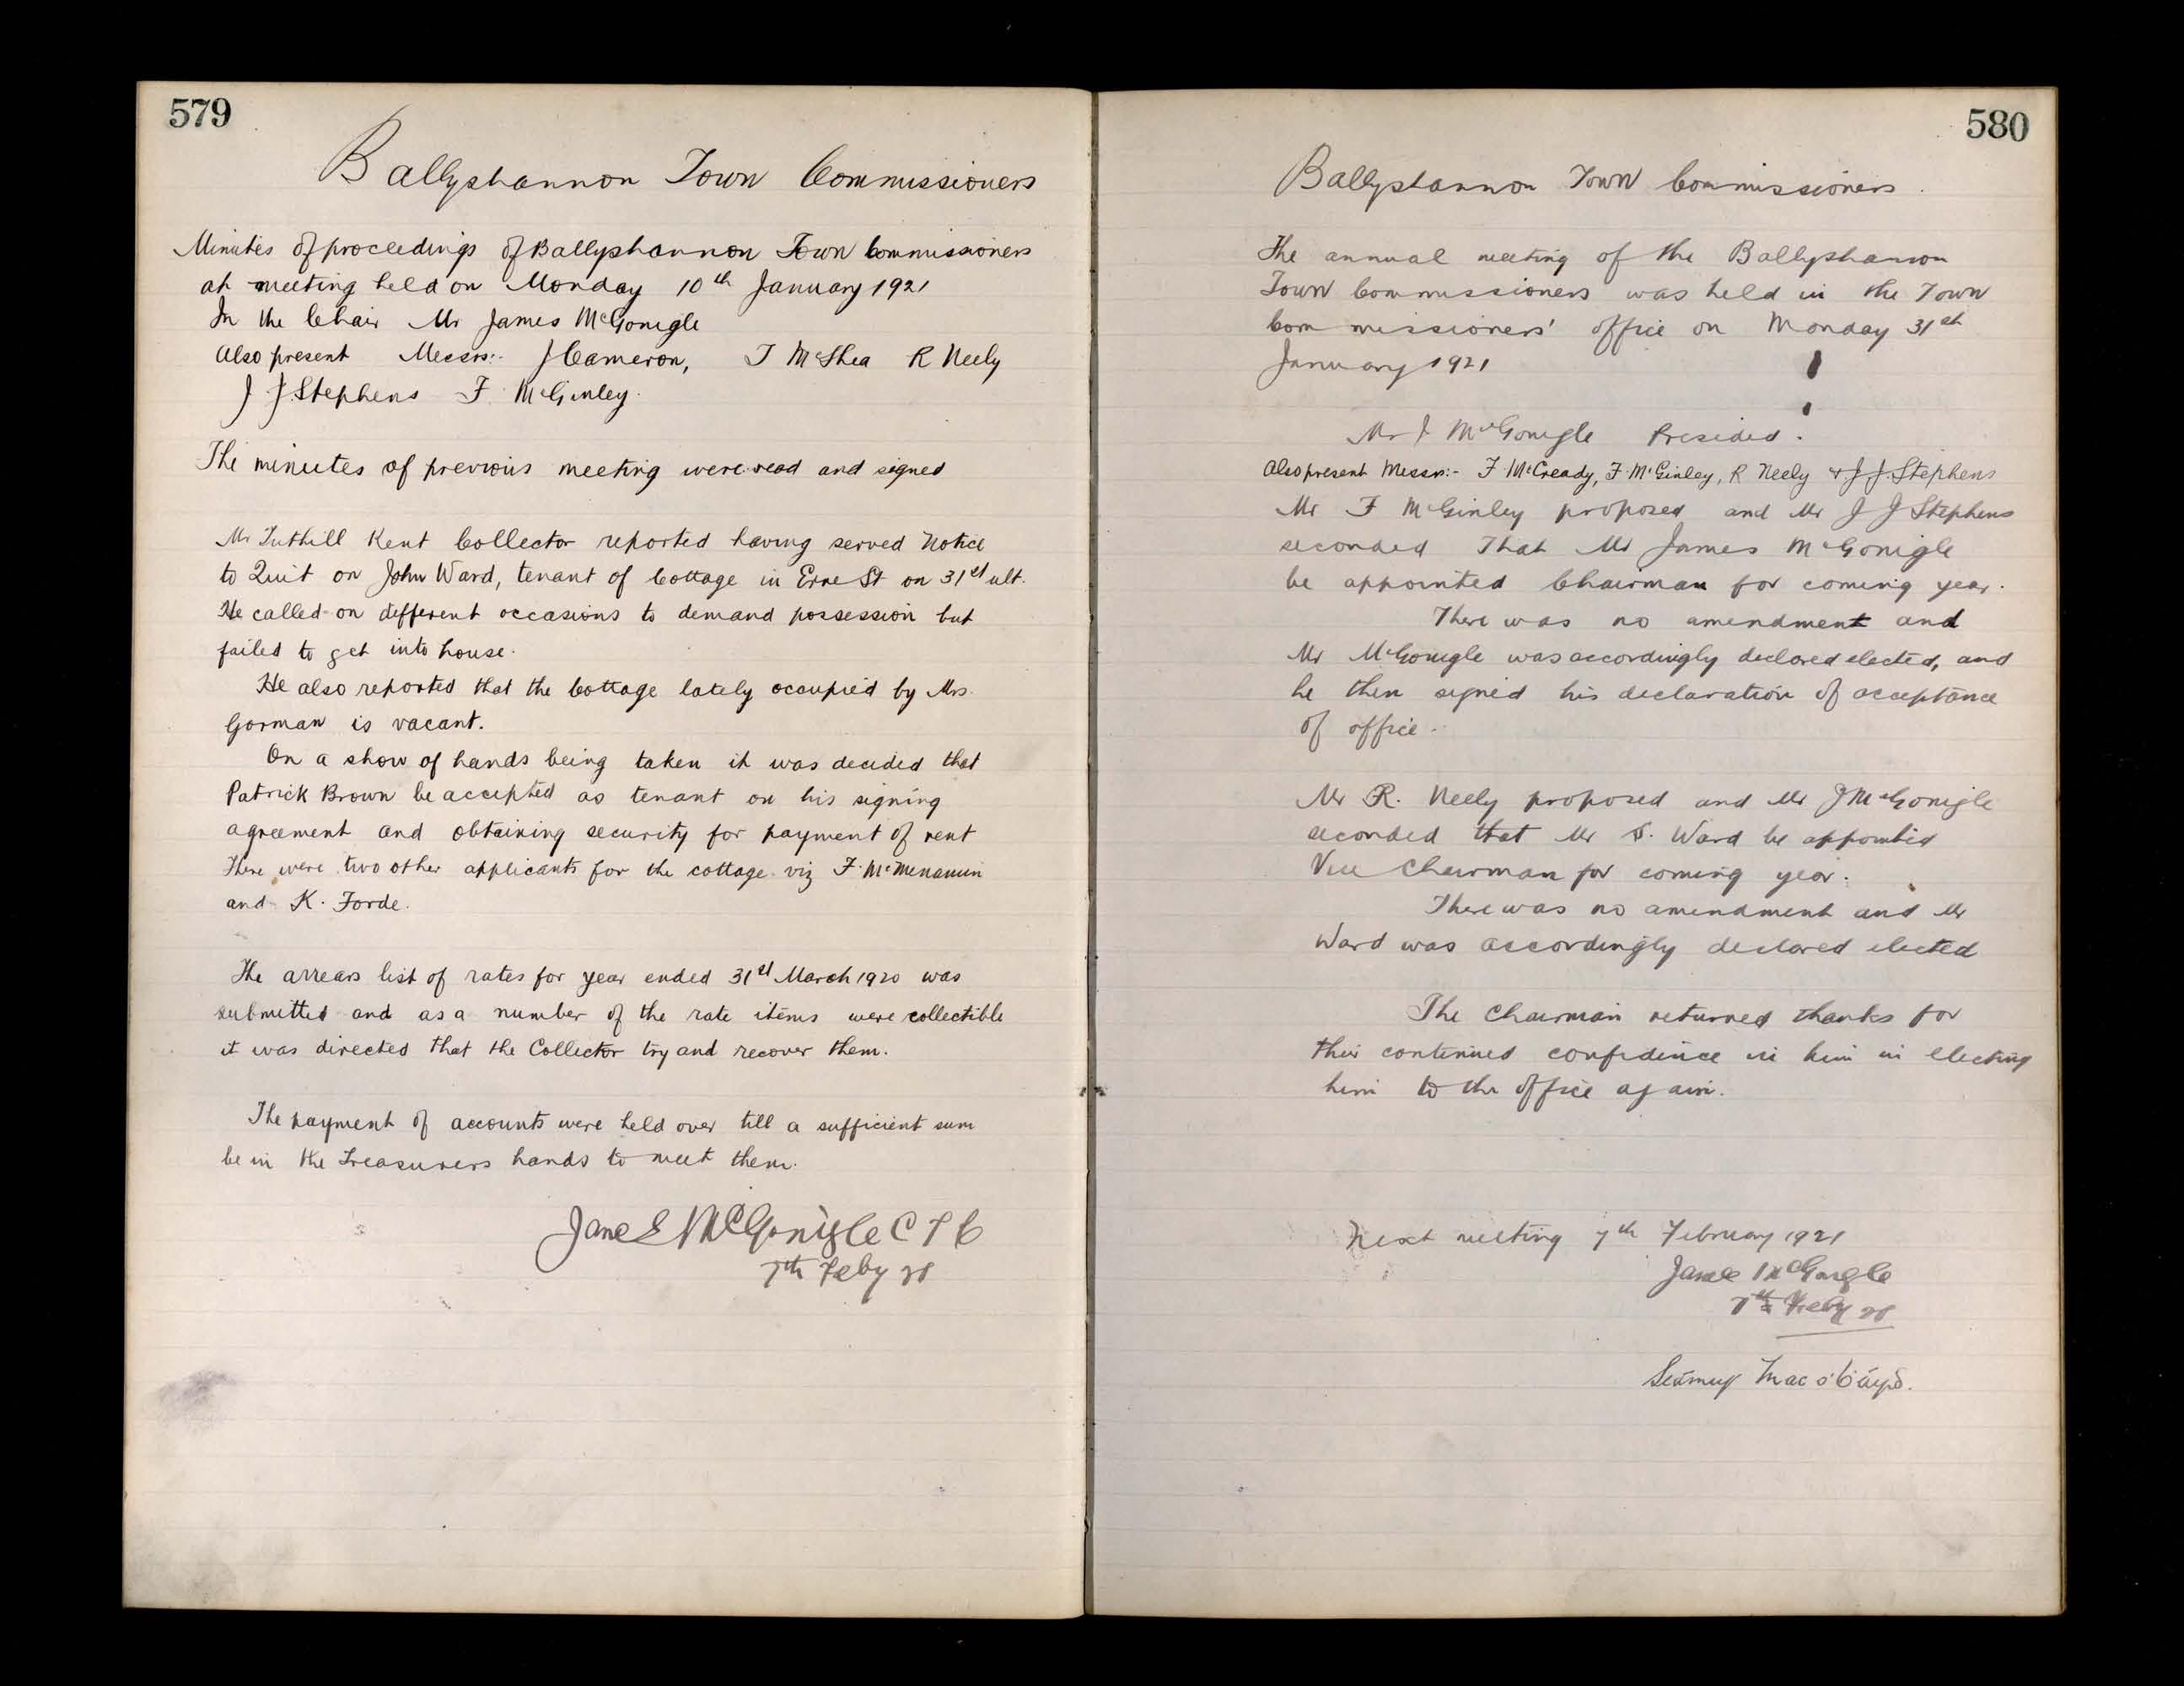 579
Ballyshannon Town Commissioners
Minutes of proceedings of Ballyshannon Town Commissioners
at meeting held on Monday 10th January 1921
In the Chair Mr James McGonigle
Also present Messrs:- J Cameron, T McShea R Neely
J J Stephens F McGinley.
The minutes of previous meeting were read and signed
Mr Tuthill Rent Collector reported having served Notice
to Quit on John Ward, tenant of Cottage in Erne St on 31st ult.
He called on different occasions to demand possession but
failed to get into house.
He also reported that the Cottage lately occupied by Mrs.
Gorman is vacant.
On a show of hands being taken it was decided that
Patrick Brown be accepted as tenant on his signing
agreement and obtaining security for payment of rent
There were two other applicants for the cottage viz F. McMenamin
and K. Forde.
The arrears list of rates for year ended 31st March 1920 was
submitted and as a number of the rate items were collectible
it was directed that the Collector try and recover them.
The payment of accounts were held over till a sufficient sum
be in the Treasurers hands to meet them.
James McGonigle C T C
7th Feby 21
580
Ballyshannon Town Commissioners.
The annual meeting of the Ballyshannon
Town Commissioners was held in the Town
Commissioners' office on Monday 31st
January 1921
Mr J McGonigle Presided.
Also present Messrs:- F McCready, F. McGinley, R Neely & J. J. Stephens
Mr F McGinley proposed and Mr J J Stephens
seconded That Mr James McGonigle
be appointed Chairman for coming year.
There was no amendment and
Mr McGonigle was accordingly declared elected, and
he then signed his declaration of acceptance
of office.
Mr R. Neely proposed and Mr J McGonigle
seconded that Mr Ward be appointed
Vice Chairman for coming year.
There was no amendment and Mr
Ward was accordingly declared elected
The Chairman returned thanks for
their continued confidence in him in electing
him to the office again.
Next meeting 7th February 1921
James McGonigle
7th Feby 21